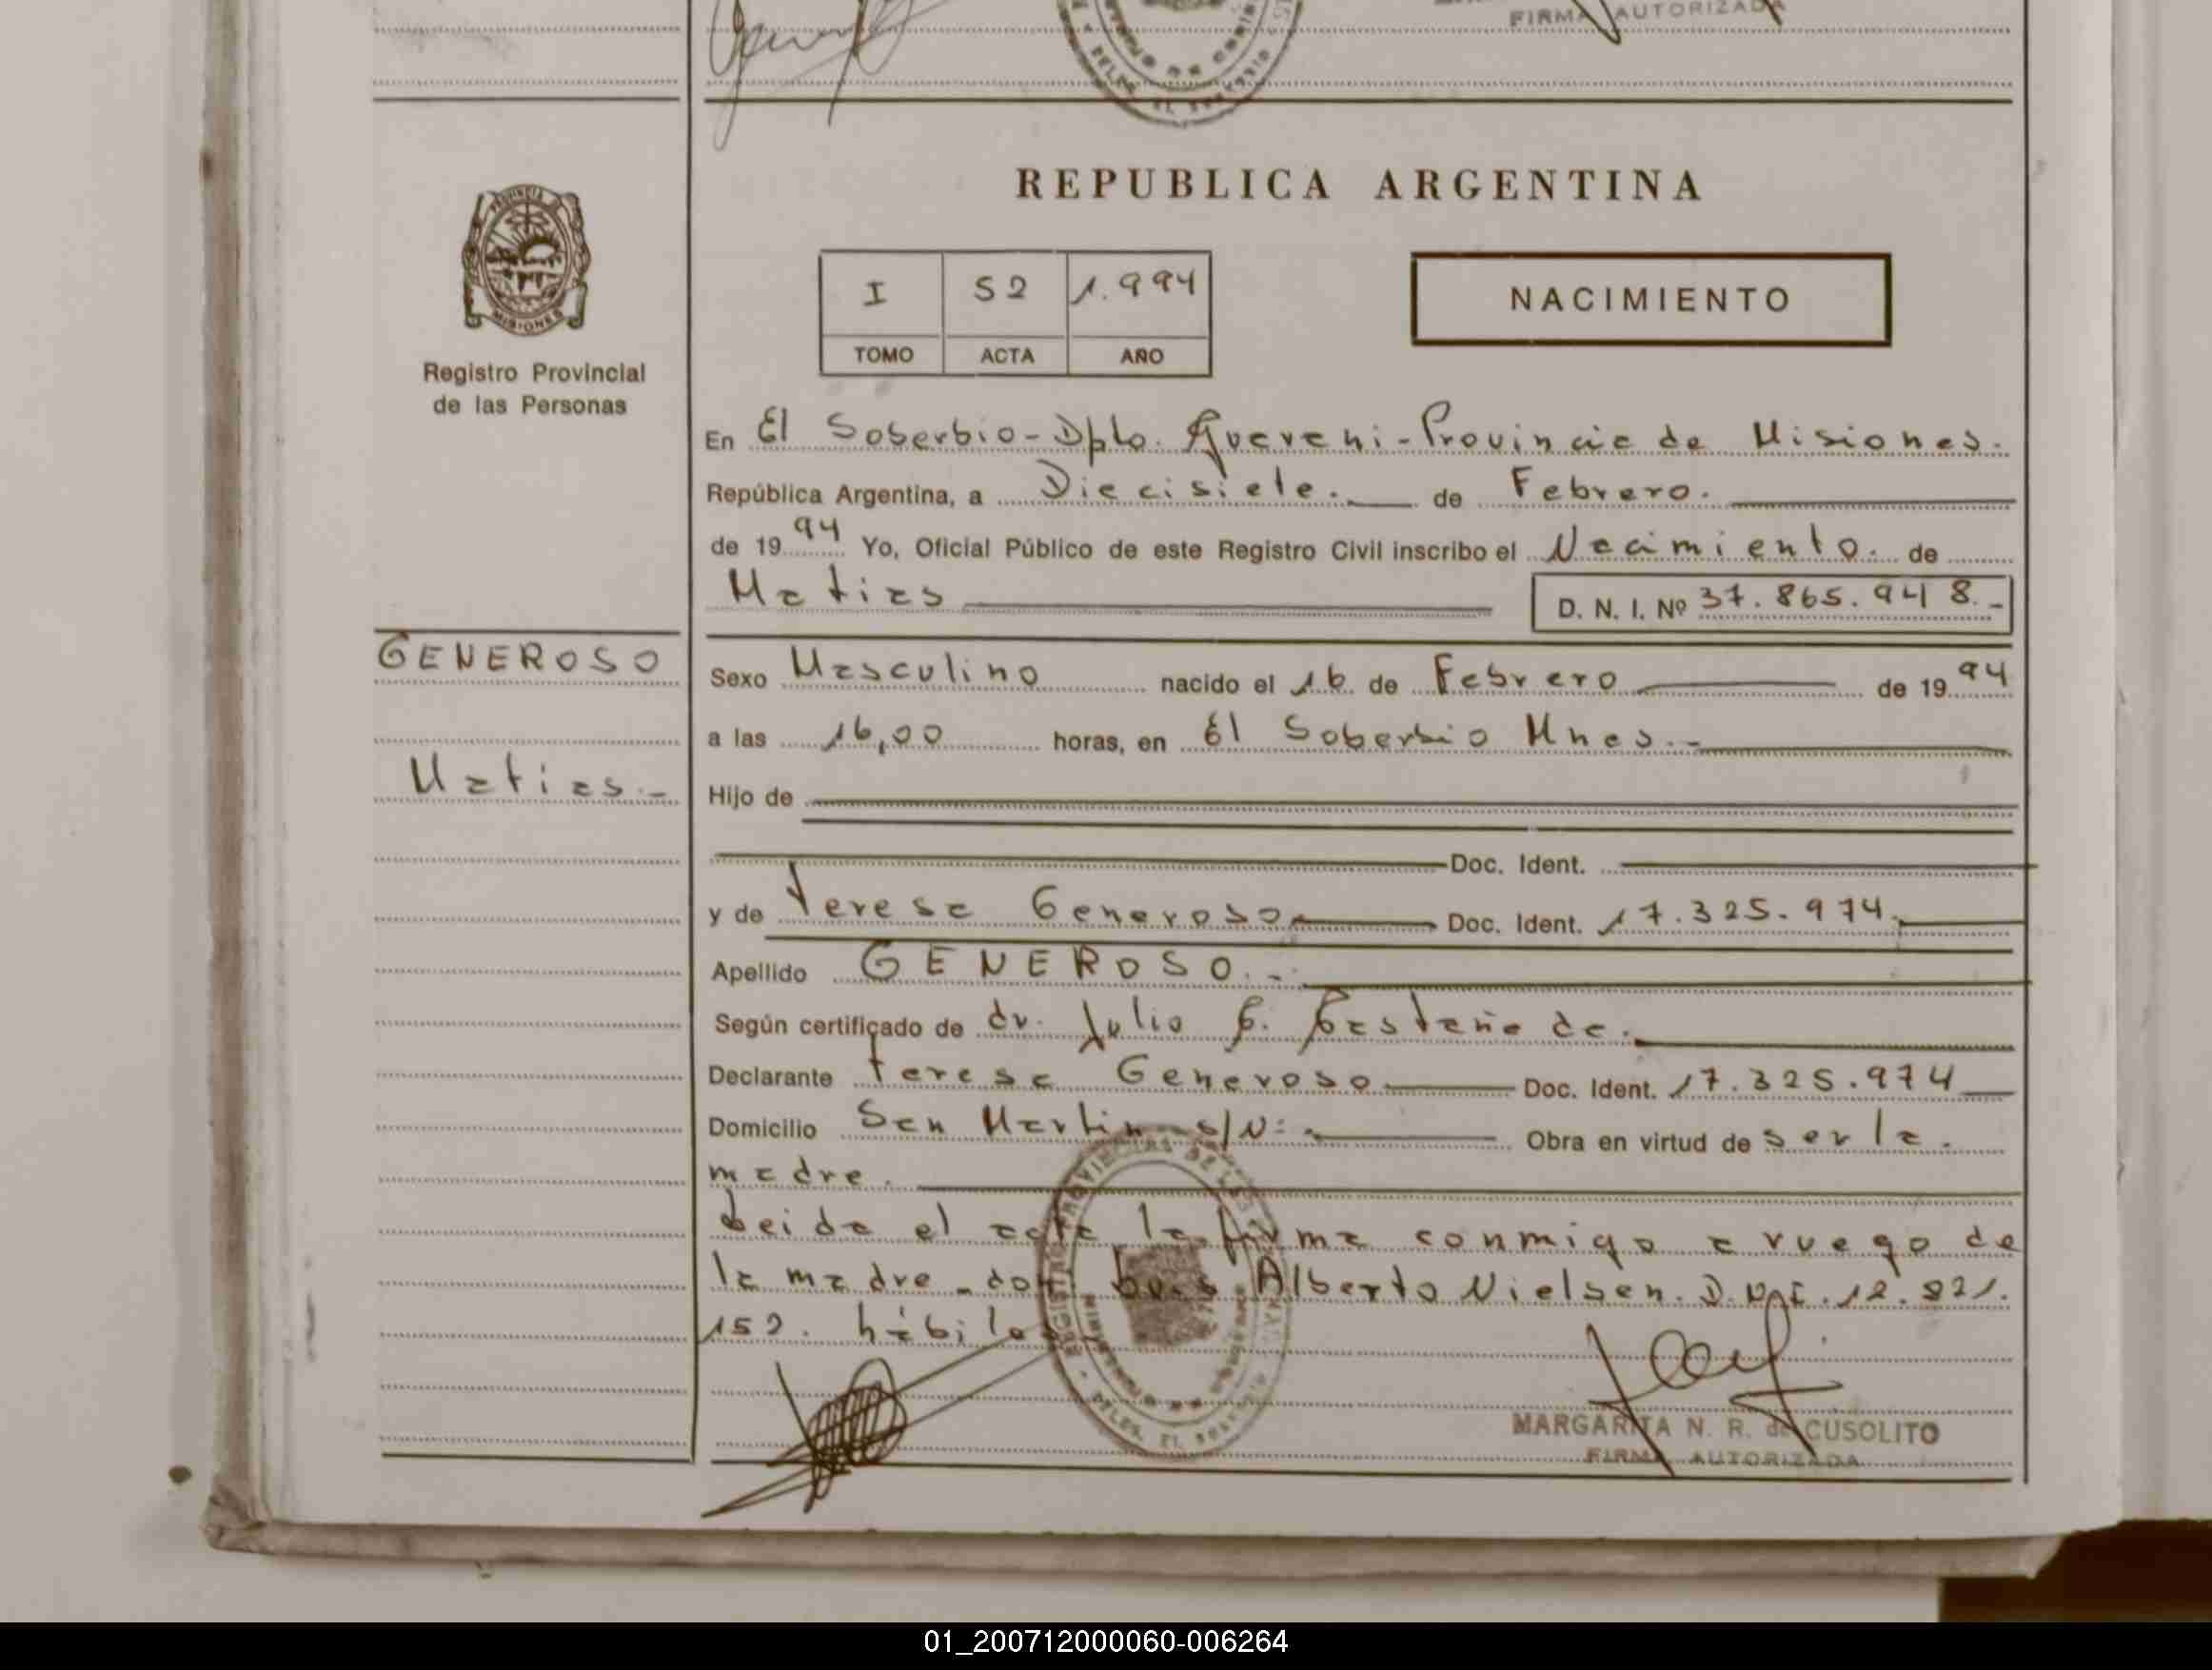 FIRMA AUTORIZADA
REPUBLICA ARGENTINA
PROVINCIA DE
MISIONES
Registro Provincial
de las Personas
I 52 1.994
TOMO ACTA AÑO
NACIMIENTO
En El Soberbio-Dpto. Guarani-Provincia de Misiones.
República Argentina, a Diecisiete. de Febrero.
de 1994 Yo, Oficial Público de este Registro Civil inscribo el Nacimiento. de
Matias D. N. I. Nº 37.865.948.-
GENEROSO
Matias.-
Sexo Masculino nacido el 16 de Febrero de 1994
a las 16,00 horas, en El Soberbio Mnes.-
Hijo de
Doc. Ident.
y de Teresa Generoso Doc. Ident. 17.325.974.
Apellido GENEROSO.-
Según certificado de dr. Julio C. Castaño de.
Declarante Teresa Generoso Doc. Ident. 17.325.974
Domicilio San Martin s/Nº Obra en virtud de ser la
madre.
Leida el acta la firma conmigo a ruego de
la madre don Luis Alberto Nielsen. D.N.I. 12.821.
152. hábil
MARGARITA N. R. de CUSOLITO
FIRMA AUTORIZADA
01_200712000060-006264